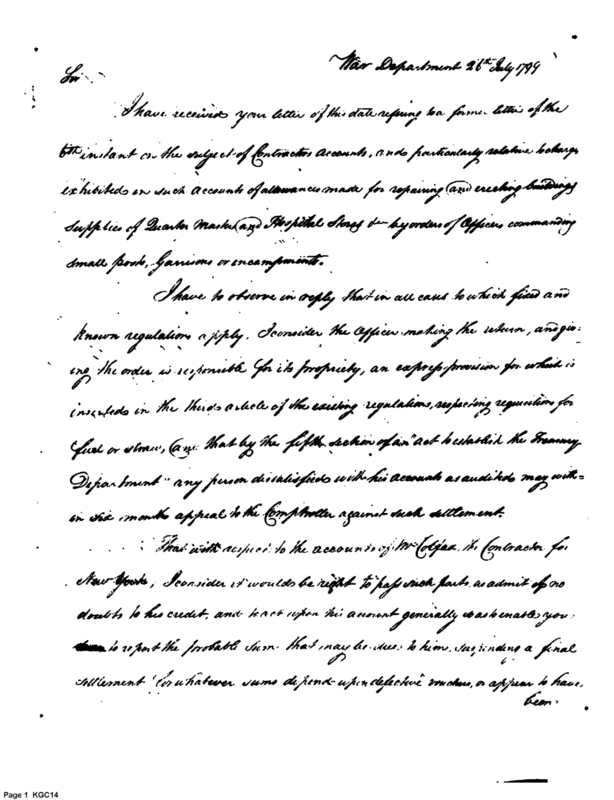 War Department 26th July 1799
Sir
I have received your letter of this date refering to a former letter of the
6th instant on the subject of Contractors Accounts, and particularly relative to charges
exhibited in such accounts of allowances made for repairing and erecting buildings
Supplies of Quarter Master and Hospital Stores &c by orders of Officers commanding
small posts, Garrisons or encampments.
I have to observe in reply that in all cases to which fixed and
known regulations apply. I consider the Officer making the return, and giv-
ing the order is responsible for its propriety, an express provision for which is
inserted in the third article of the existing regulations, respecting requisition for
fuel or straw, and that by the fifth section of an "act to establish the Treasury
Department" any person dissatisfied with his accounts as audited may with=
in six months appeal to the Comptroller against such settlement.
That with respect to the accounts of Mr Colfax, the Contractor for
New York, I consider it would be right to pass such parts as admit of no
doubts to his credit, and to act upon his account generally so as to enable you
to report the probable sum that may be due to him, suspending a final
settlement for whatever sums depend upon defective vouchers, or appear to have
been.
Page 1 KGC14